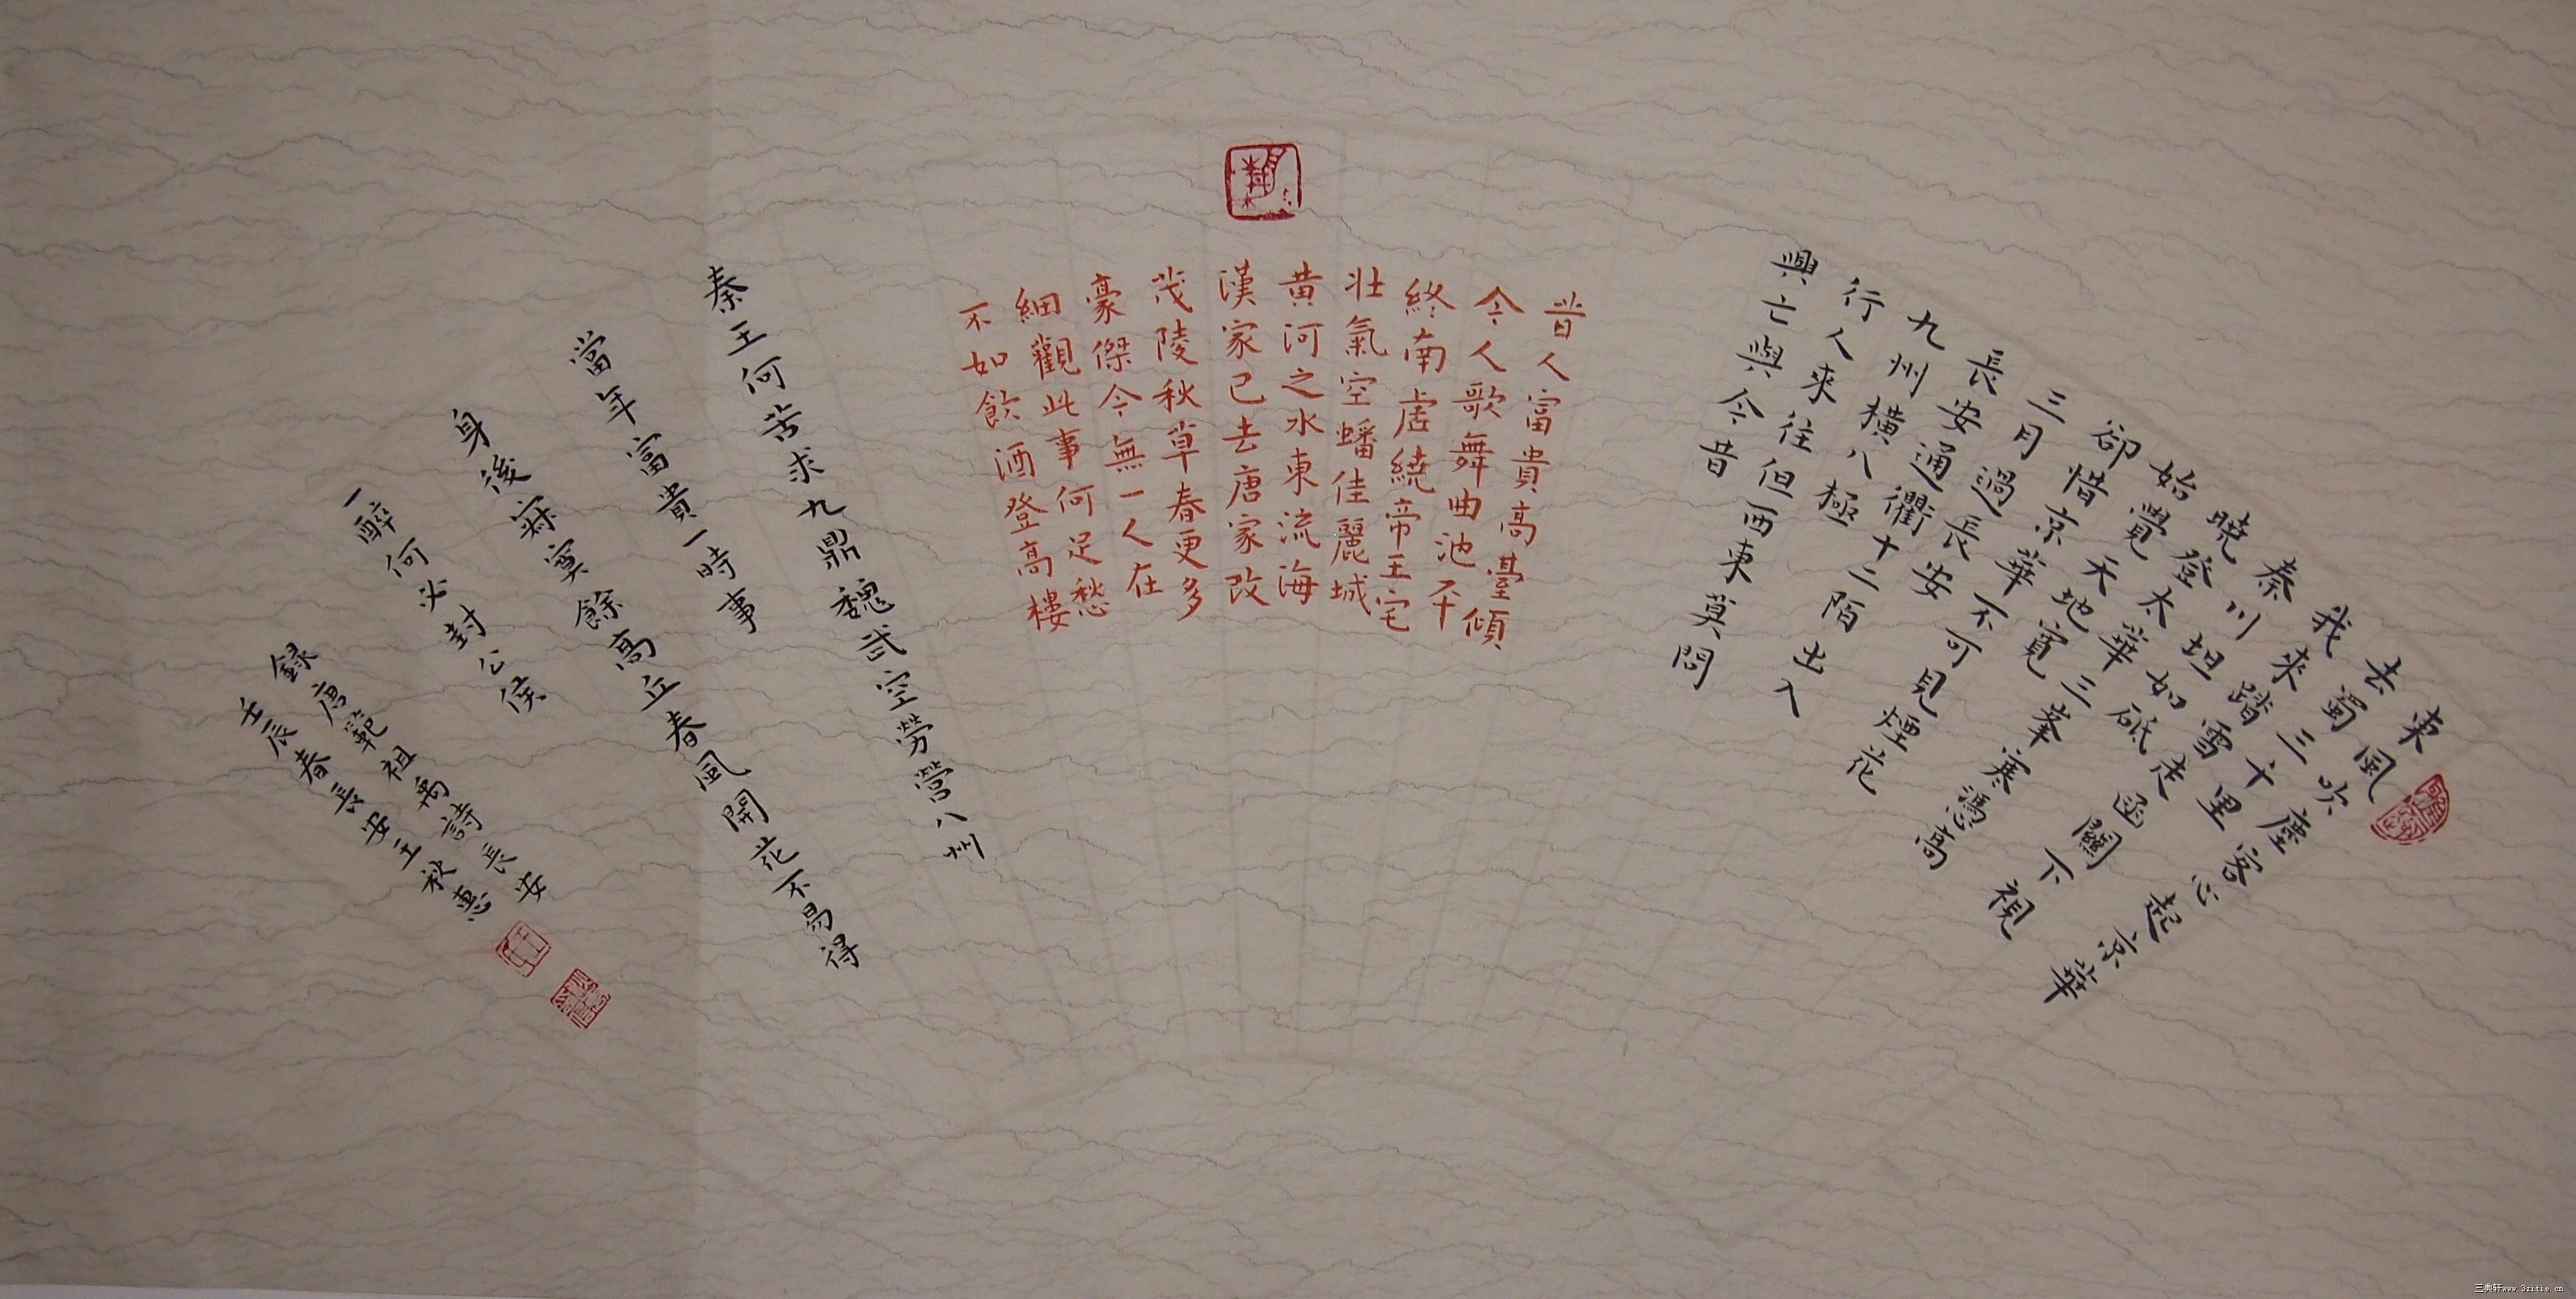 東風吹塵客心起京華
去蜀三千里
我來踏雪走函關下視
秦川坦如砥
曉登太華三峯寒憑高
始覺天地寬
卻惜京華不可見煙花
三月過長安
長安通衢十二陌出入
九州橫八極
行人來往但西東莫問
興亡與今昔
昔人富貴高臺傾
今人歌舞曲池平
終南虛繞帝王宅
壯氣空蟠佳麗城
黄河之水東流海
漢家已去唐家改
茂陵秋草春更多
豪傑今無一人在
細觀此事何足愁
不如飲酒登高樓
秦王何苦求九鼎魏武空勞營八州
當年富貴一時事
身後寂寞餘高丘春風開花不易得
一醉何必封公侯
録唐範祖禹詩長安
壬辰春長安王秋惠
三典轩www.3zitie.cn